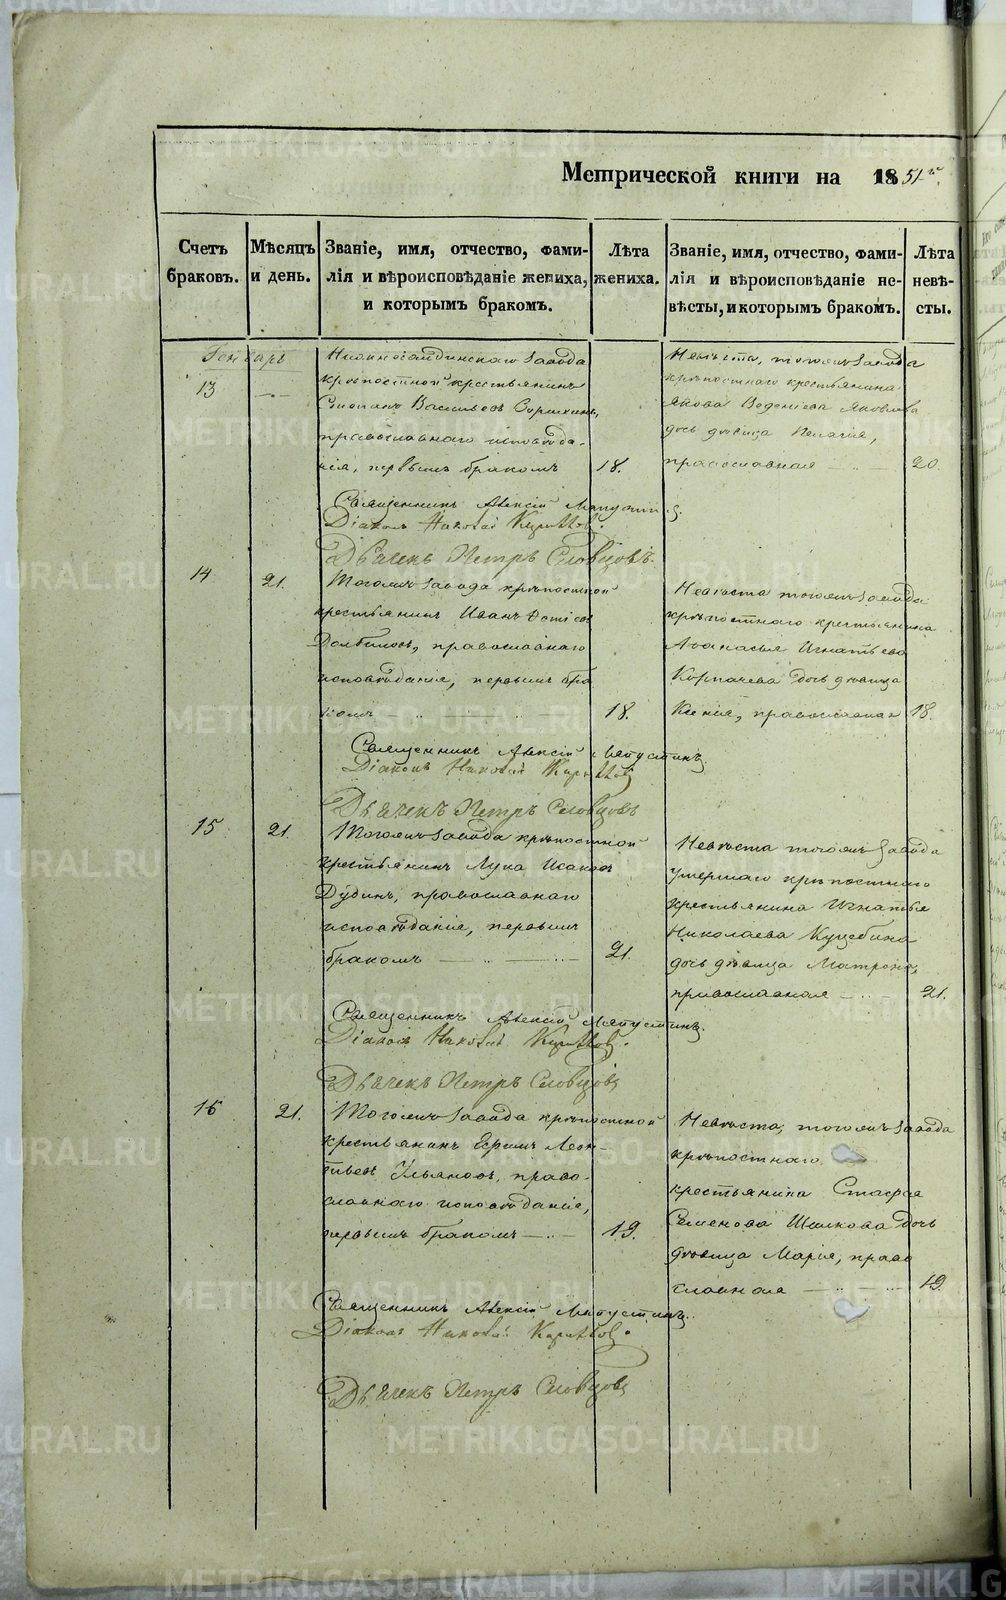 Метрической книги на 1851го.
Счетъ браковъ.
Мѣсяцъ и день.
Званіе, имя, отчество, фами-
лія и вѣроисповѣданіе жениха,
и которымъ бракомъ.
Лѣта жениха.
Званіе, имя, отчество, фами-
лія и вѣроисповѣданіе не-
вѣсты, и которымъ бракомъ.
Лѣта невѣ-
сты.
Генварь
13
завода
крѣпостной крестьянинъ
Степанъ Васильевъ
православнаго исповѣда-
нія, первымъ бракомъ
18.
Невѣста, тогожъ завода
крѣпостнаго крестьянина
Якова Яковлева
дочь дѣвица Пелагія,
православная
20.
Священникъ Алексій
Діаконъ Николай
Дьячекъ Петръ Словцовъ.
14
21.
Тогожъ завода крѣпостной
крестьянинъ Иванъ
православнаго
исповѣданія, первымъ бра
комъ
18.
Невѣста тогожъ завода
крѣпостнаго крестьянина
Аѳанасья Игнатьева
Корпачева дочь дѣвица
православная
18.
Священникъ Алексій
Діаконъ Николай
Дьячекъ Петръ Словцовъ
15
21.
Тогожъ завода крѣпостной
крестьянинъ Лука Исаковъ
Дубинъ, православнаго
исповѣданія, первымъ
бракомъ
21.
Невѣста тогожъ завода
умершаго крѣпостнаго
крестьянина Игнатья
Николаева
дочь дѣвица Матрона,
православная
21.
Священникъ Алексій
Діаконъ Николай
Дьячекъ Петръ Словцовъ
16
21.
Тогожъ завода крѣпостной
крестьянинъ Ефимъ Леон-
тьевъ Ульяновъ, право-
славнаго исповѣданія,
первымъ бракомъ
19.
Невѣста, тогожъ завода
крѣпостнаго
крестьянина
Семенова дочь
дѣвица Марія, право
славная
19.
Священникъ Алексій
Діаконъ Николай
Дьячекъ Петръ Словцовъ
METRIKI.GASO-URAL.RU